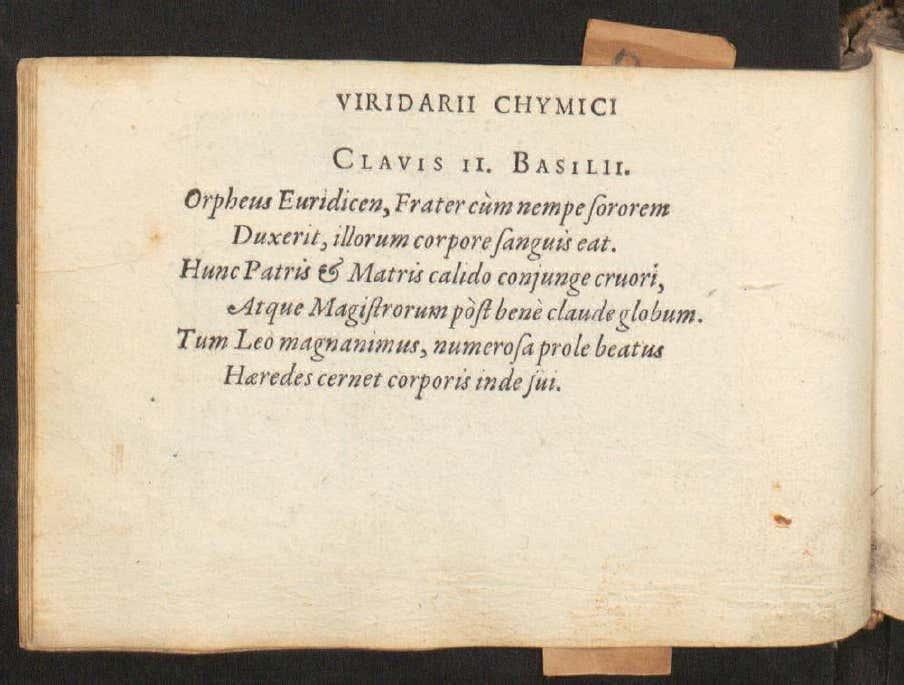 VIRIDARII CHYMICI
CLAVIS II. BASILII.
Orpheus Euridicen, Frater cùm nempe ſororem
Duxerit, illorum corpore ſanguis eat.
Hunc Patris & Matris calido conjunge cruori,
Atque Magiſtrorum pòſt benè claude globum.
Tum Leo magnanimus, numeroſa prole beatus
Hæredes cernet corporis inde ſui.